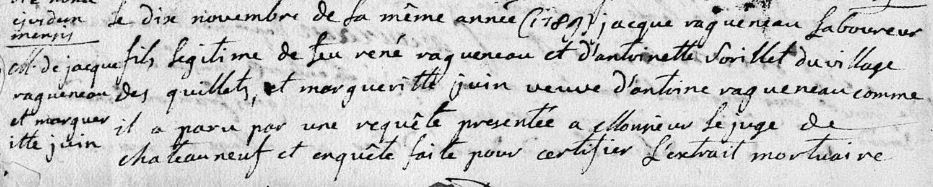 ejusdem
mensis
M. de jacque
ragueneau
et marguer
itte juin
le dix novembre de la même année (1789) jacque ragueneau laboureur
fils legitime de feu rené ragueneau et d'antoinette Sorillet du village
des quillets, et margueritte juin veuve d'antoine ragueneau comme
il a paru par une requête presentée a Monsieur le juge de
chateauneuf et enquête faite pour certifier l'extrait mortuaire